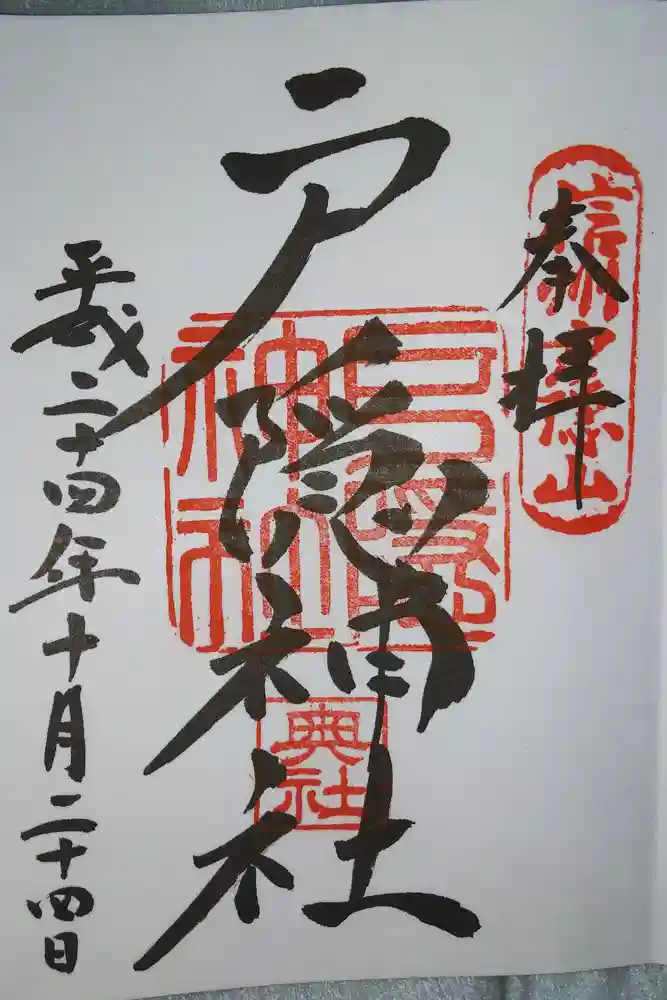 奉拝
信州戸隠山
戸隠神社
戸隠
神社
奥社
平成二十四年十月二十四日